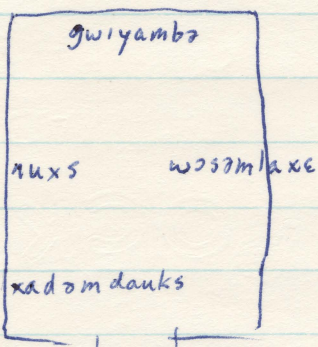 gwɪyambə
nuxs wɔsəmlaxɛ
xadəmdauks